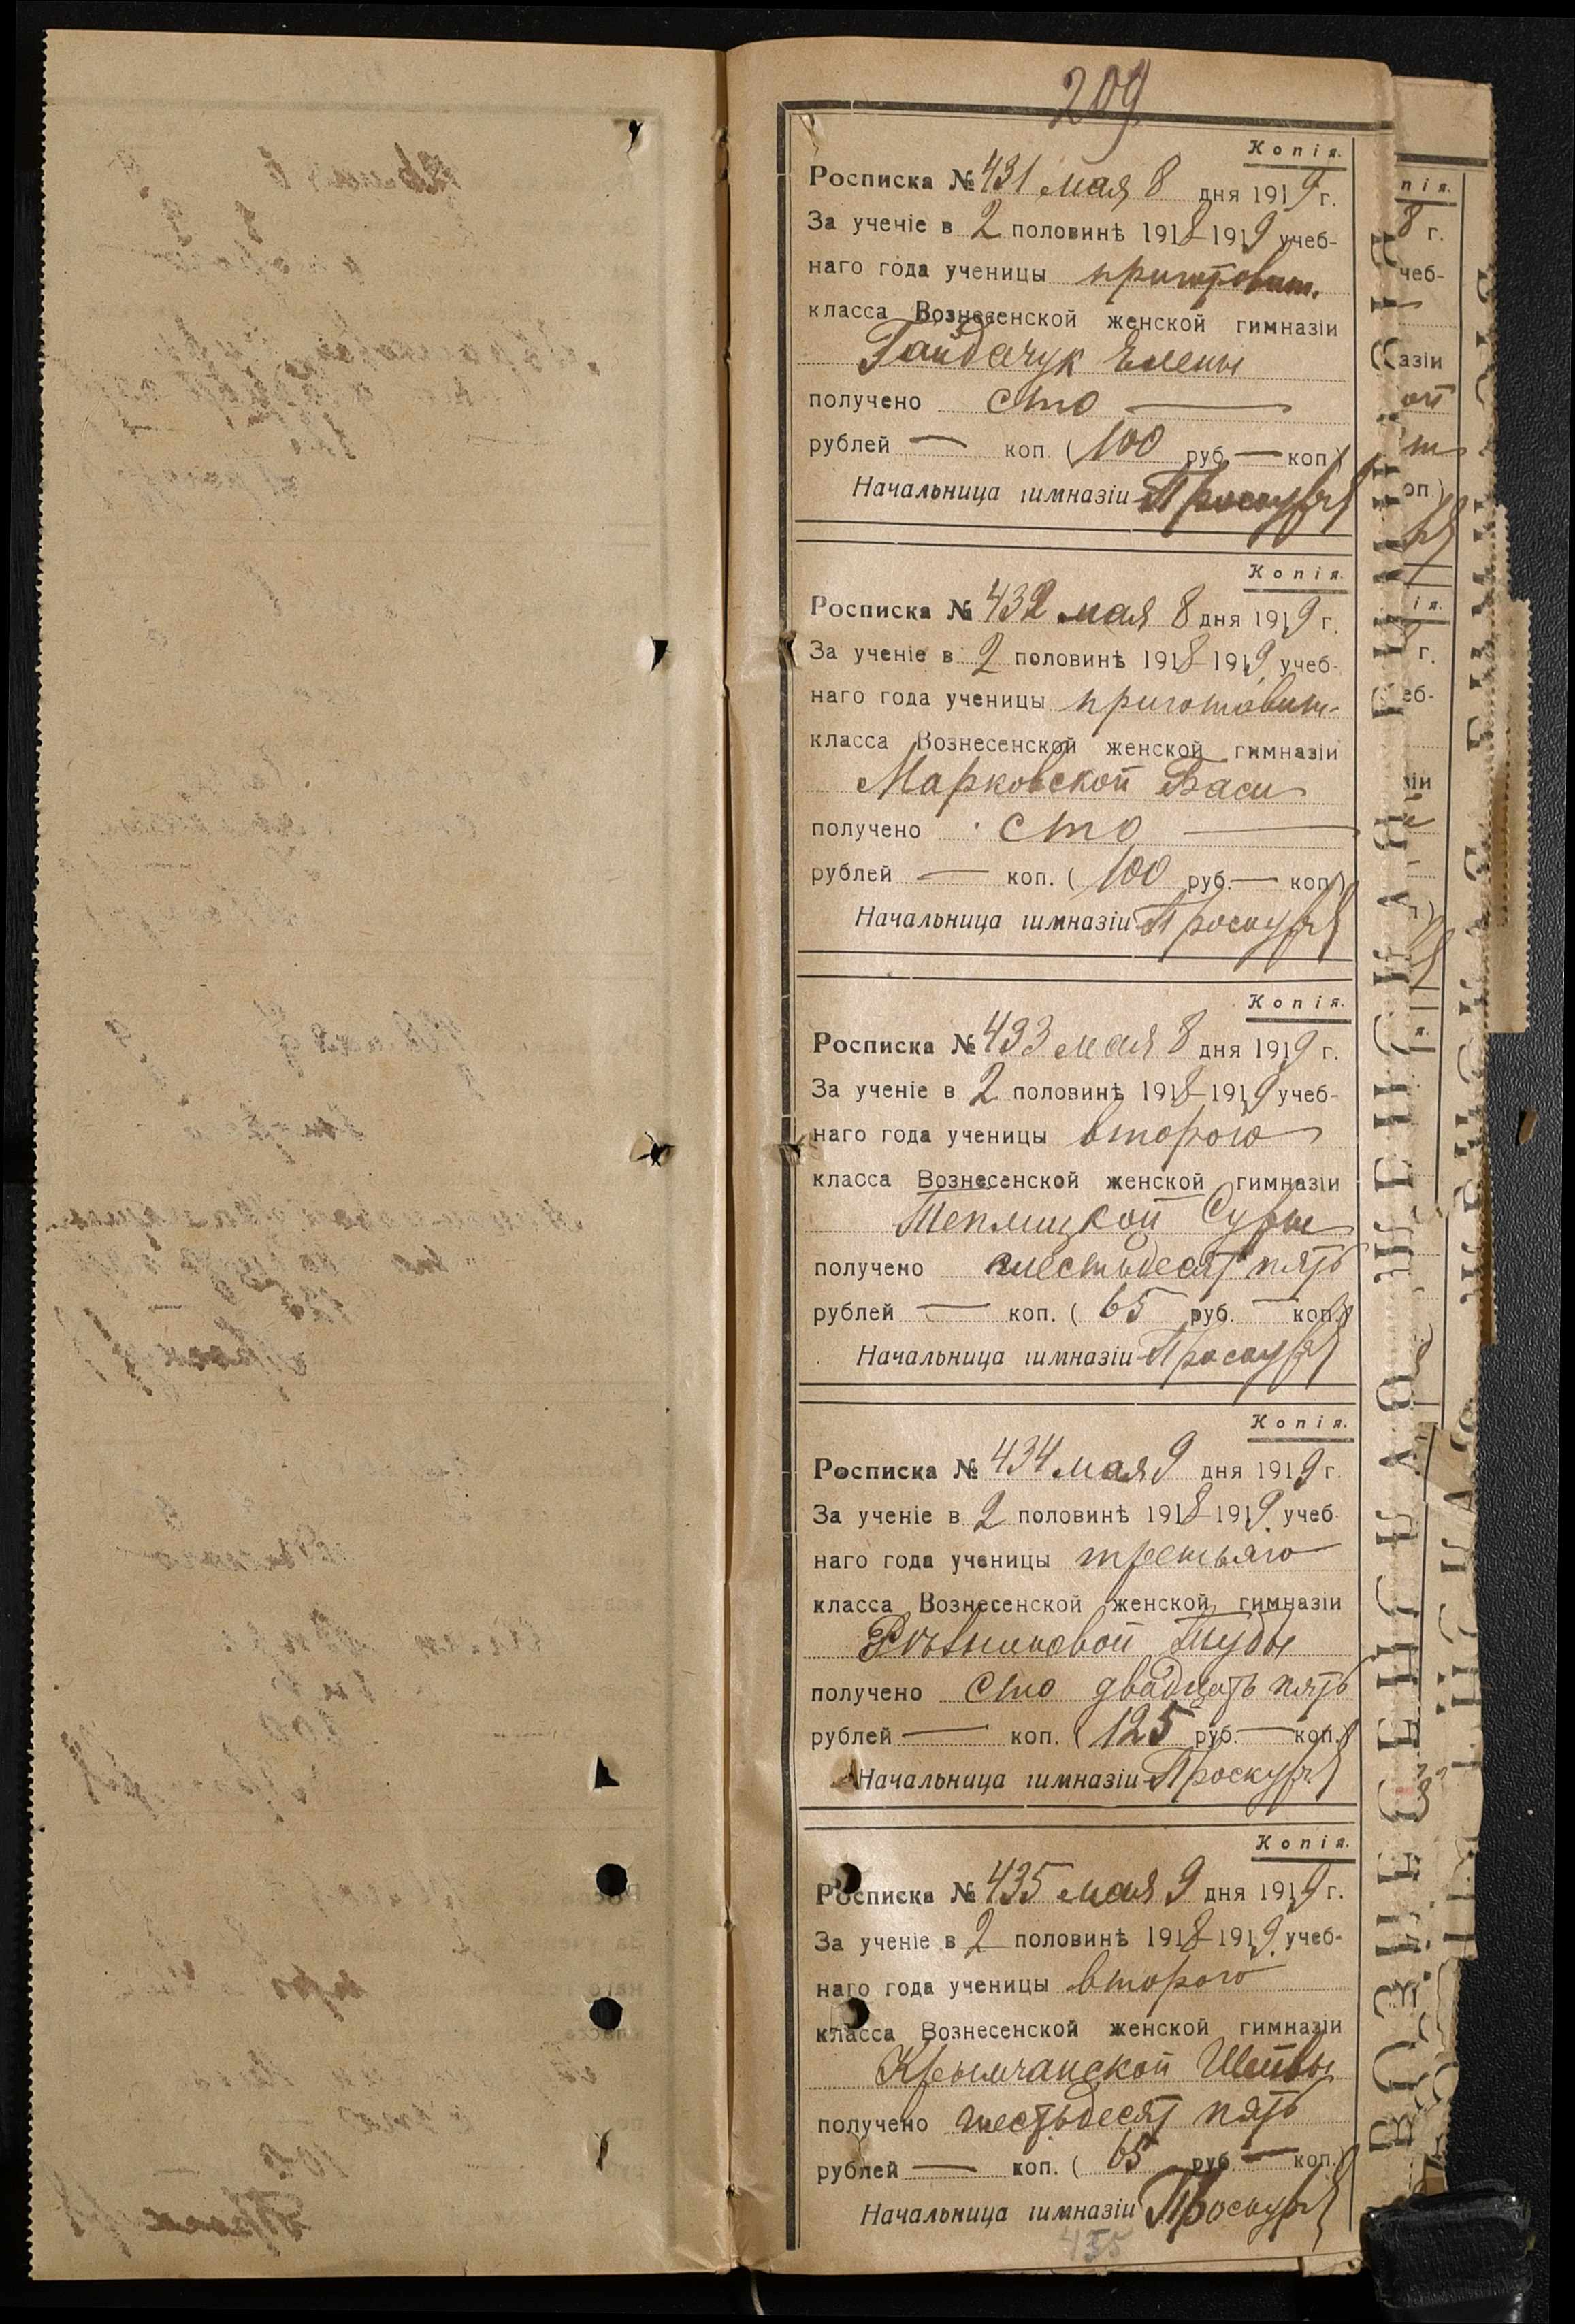 209
Копія.
Росписка № 431 мая 8 дня 1919 г.
За ученіе в 2 половинѣ 1918-1919 учеб-
наго года ученицы приготовит.
класса Вознесенской женской гимназіи
Гайдачук Елены
получено сто —
рублей — коп. (100 руб. — коп)
Начальница гимназіи
Копія.
Росписка № 432 мая 8 дня 1919 г.
За ученіе в 2 половинѣ 1918-1919 учеб-
наго года ученицы приготовит-
класса Вознесенской женской гимназіи
Марковской Баси
получено сто —
рублей — коп. (100 руб. — коп)
Начальница гимназіи
Копія.
Росписка № 433 мая 8 дня 1919 г.
За ученіе в 2 половинѣ 1918-1919 учеб-
наго года ученицы второго
класса Вознесенской женской гимназіи
Теплицкой Суры
получено шестьдесят пять
рублей — коп. (65 руб. — коп.)
Начальница гимназіи
Копія.
Росписка № 434 мая 9 дня 1919 г.
За ученіе в 2 половинѣ 1918-1919 учеб
наго года ученицы третьяго
класса Вознесенской женской гимназіи
получено сто двадцать пять
рублей — коп. (125 руб. — коп.)
Начальница гимназіи
Копія.
Росписка № 435 мая 9 дня 1919 г.
За ученіе в 2 половинѣ 1918-1919 учеб-
наго года ученицы второго
класса Вознесенской женской гимназіи
Крымчанской Шейвы
получено шестьдесят пять
рублей — коп. (65 руб. — коп.)
Начальница гимназіи
435